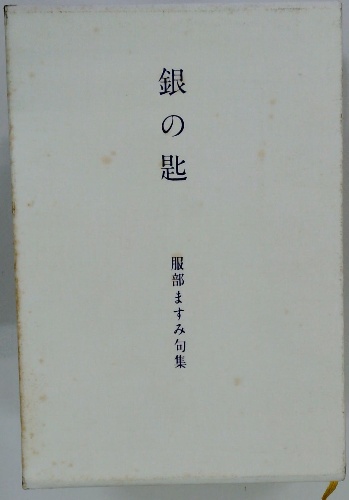 銀の匙
服部ますみ句集